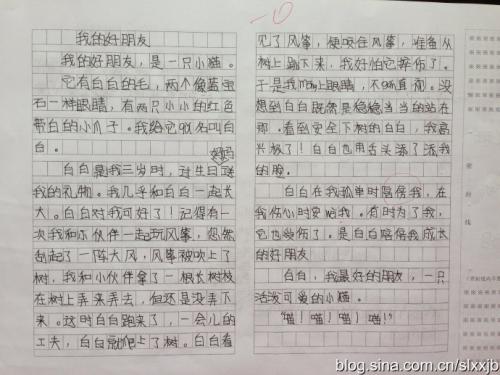 我的好朋友
我的好朋友，是一只小猫。
它有白白的毛，两个像蓝宝
石一样眼睛，有两只小小的红色
带白的小爪子。我给它取名叫白
白。
妈妈
白白是我三岁时，过生日送
我的礼物。我几乎和白白一起长
大。白白对我可好了！记得有一
次我和小伙伴一起玩风筝，忽然
刮起了一阵大风，风筝被吹上了
树，我和小伙伴拿了一根长树枝
在树上弄来弄去，但还是没弄下
来。这时白白跑来了，一会儿的
工夫，白白就爬上了树。白白看
-10
见了风筝，便咬住风筝，准备从
树上蹦下来，我好怕它摔伤了。于
是我闭上眼睛，不敢直视。没
想到白白既然是稳稳当当的站在
那。看到安全下树的白白，我高
兴极了！白白也用舌头添了添我
的脸。
白白在我孤单时陪伴我，在
我伤心时安慰我。有时为了我，
它也受伤了。是白白陪伴我成长
的好朋友
白白，我最好的朋友，一只
活泼可爱的小猫。
“喵！喵！喵！喵！”
密
封
线
blog.sina.com.cn/slxxjb